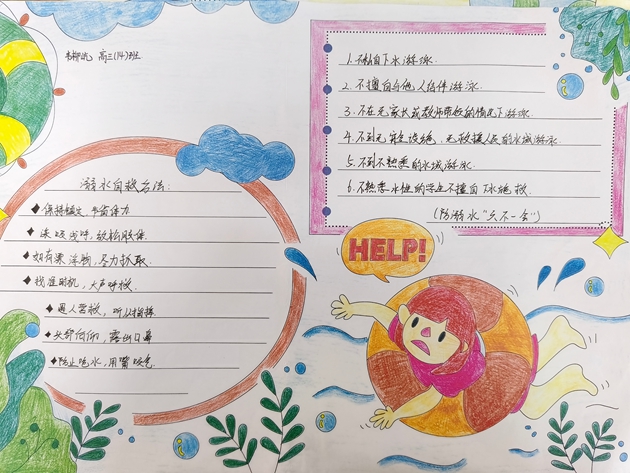 高三(14)班
1.不私自下水游泳.
2.不擅自与他人结伴游泳.
3.不在无家长或教师带领的情况下游泳.
4.不到无安全设施、无救援人员的水域游泳.
5.不到不熟悉的水域游泳.
6.不熟悉水性的学生不擅自下水施救.
(防溺水"六不一会")
溺水自救方法:
保持镇定,节省体力
深吸浅呼,放松肢体.
如有漂浮物,尽力抓取.
找准时机,大声呼救.
遇人营救,听从指挥.
头部后仰,露出口鼻
防止呛水,用嘴吸气.
HELP!